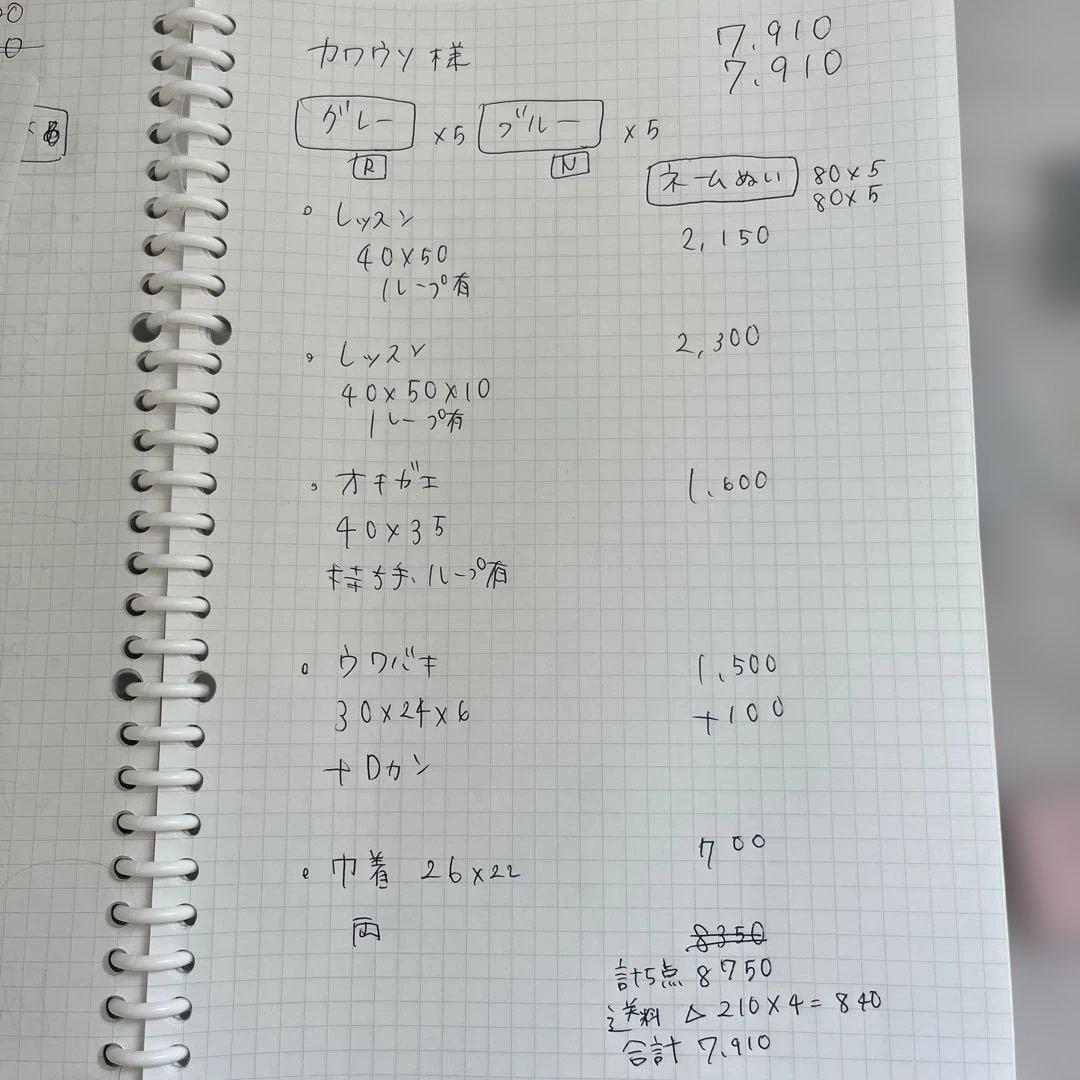 カワウソ様
7.910
7.910
グレー ×5 ブルー ×5
R N
ネームぬい 80×5
80×5
・レッスン
40×50
ループ有
2,150
・レッスン
40×50×10
ループ有
2,300
・オキガエ
40×35
持ち手、ループ有
1,600
・ウワバキ
30×24×6
+Dカン
1,500
+100
・巾着 26×22
両
700
8350
計5点 8750
送料 △ 210×4=840
合計 7.910